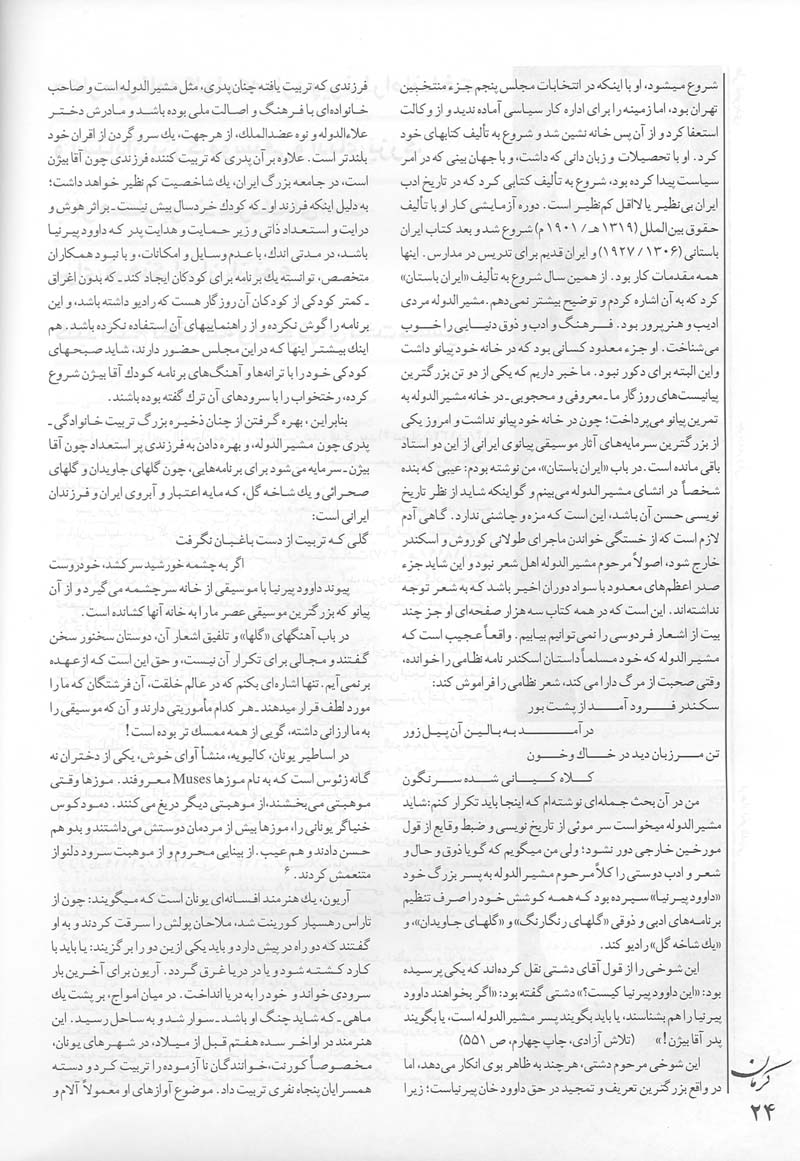 شروع میشود، او با اینکه در انتخابات مجلس پنجم جزء منتخبین
تهران بود، اما زمینه را برای اداره کار سیاسی آماده ندید و از وکالت
استعفا کرد و از آن پس خانه نشین شد و شروع به تألیف کتابهای خود
کرد. او با تحصیلات و زبان دانی که داشت، و با جهان بینی که در امر
سیاست پیدا کرده بود، شروع به تألیف کتابی کرد که در تاریخ ادب
ایران بی‌نظیر یا لااقل کم‌نظیر است. دوره آزمایشی کار او با تألیف
حقوق بین‌الملل (۱۳۱۹ هـ/ ۱۹۰۱ م) شروع شد و بعد کتاب ایران
باستانی (۱۳۰۶ / ۱۹۲۷) و ایران قدیم برای تدریس در مدارس. اینها
همه مقدمات کار بود. از همین سال شروع به تألیف «ایران باستان»
کرد که به آن اشاره کردم و توضیح بیشتر نمی‌دهم. مشیرالدوله مردی
ادیب و هنرپرور بود. فرهنگ و ادب و ذوق دنیایی را خوب
می‌شناخت. او جزء معدود کسانی بود که در خانه خود پیانو داشت
و این البته برای دکور نبود. ما خبر داریم که یکی از دو تن بزرگترین
پیانیست‌های روزگار ما ـ معروفی و محجوبی ـ در خانه مشیرالدوله به
تمرین پیانو می‌پرداخت؛ چون در خانه خود پیانو نداشت و امروز یکی
از بزرگترین سرمایه‌های آثار موسیقی پیانوی ایرانی از این دو استاد
باقی مانده است. در باب «ایران باستان»، من نوشته بودم: عیبی که بنده
شخصاً در انشای مشیرالدوله می‌بینم و گو اینکه شاید از نظر تاریخ
نویسی حسن آن باشد، این است که مزه و چاشنی ندارد. گاهی آدم
لازم است که از خستگی خواندن ماجرای طولانی کوروش و اسکندر
خارج شود، اصولاً مرحوم مشیرالدوله اهل شعر نبود و این شاید جزء
صدر اعظم‌های معدود با سواد دوران اخیر باشد که به شعر توجه
نداشته‌اند. این است که در همه کتاب سه هزار صفحه‌ای او جز چند
بیت از اشعار فردوسی را نمی‌توانیم بیابیم. واقعاً عجیب است که
مشیرالدوله که خود مسلماً داستان اسکندر نامه نظامی را خوانده،
وقتی صحبت از مرگ دارا می‌کند، شعر نظامی را فراموش کند:
سکندر فرود آمد از پشت بور
در آمد به بالین آن پیل زور
تن مرزبان دید در خاک و خون
کلاه کیانی شده سرنگون
من در آن بحث جمله‌ای نوشته‌ام که اینجا باید تکرار کنم: شاید
مشیرالدوله میخواست سر موئی از تاریخ نویسی و ضبط وقایع از قول
مورخین خارجی دور نشود؛ ولی من میگویم که گویا ذوق و حال و
شعر و ادب دوستی را کلاً مرحوم مشیرالدوله به پسر بزرگ خود
«داوود پیرنیا» سپرده بود که همه کوشش خود را صرف تنظیم
برنامه‌های ادبی و ذوقی «گلهای رنگارنگ» و «گلهای جاویدان»، و
«یك شاخه گل» رادیو کند.
این شوخی را از قول آقای دشتی نقل کرده‌اند که یکی پرسیده
بود: «این داوود پیرنیا کیست؟» دشتی گفته بود: «اگر بخواهند داوود
پیرنیا را هم بشناسند، یا باید بگویند پسر مشیرالدوله است، یا بگویند
پدر آقا بیژن!» (تلاش آزادی، چاپ چهارم، ص ۵۵۱)
این شوخی مرحوم دشتی، هرچند به ظاهر بوی انکار می‌دهد، اما
در واقع بزرگترین تعریف و تمجید در حق داوود خان پیرنیاست؛ زیرا
فرزندی که تربیت یافته چنان پدری، مثل مشیرالدوله است و صاحب
خانواده‌ای با فرهنگ و اصالت ملی بوده باشد و مادرش دختر
علاءالدوله و نوه عضدالملك، از هر جهت، یك سر و گردن از اقران خود
بلندتر است. علاوه بر آن پدری که تربیت کننده فرزندی چون آقا بیژن
است، در جامعه بزرگ ایران، یك شاخصیت کم نظیر خواهد داشت؛
به دلیل اینکه فرزند او ـ که کودك خردسال بیش نیست ـ بر اثر هوش و
درایت و استعداد ذاتی و زیر حمایت و هدایت پدر که داوود پیرنیا
باشد، در مدتی اندك، با عدم وسایل و امکانات، و با نبود همکاران
متخصص، توانسته یك برنامه برای کودکان ایجاد کند ـ که بدون اغراق
ـ کمتر کودکی از کودکان آن روزگار هست که رادیو داشته باشد، و این
برنامه را گوش نکرده و از راهنماییهای آن استفاده نکرده باشد. هم
اینك بیشتر اینها که در این مجلس حضور دارند، شاید صبحهای
کودکی خود را با ترانه‌ها و آهنگ‌های برنامه کودك آقا بیژن شروع
کرده، رختخواب را با سرودهای آن ترك گفته بوده باشند.
بنابراین، بهره گرفتن از چنان ذخیره بزرگ تربیت خانوادگی ـ
پدری چون مشیرالدوله، و بهره دادن به فرزندی پر استعداد چون آقا
بیژن ـ سرمایه می‌شود برای برنامه‌هایی، چون گلهای جاویدان و گلهای
صحرائی و یك شاخه گل، که مایه اعتبار و آبروی ایران و فرزندان
ایرانی است:
گلی که تربیت از دست باغبان نگرفت
اگر به چشمه خورشید سر کشد، خودروست
پیوند داوود پیرنیا با موسیقی از خانه سرچشمه می‌گیرد و از آن
پیانو که بزرگترین موسیقی عصر ما را به خانه آنها کشانده است.
در باب آهنگهای «گلها» و تلفیق اشعار آن، دوستان سخنور سخن
گفتند و مجالی برای تکرار آن نیست، و حق این است که از عهده
برنمی‌آیم. تنها اشاره‌ای بکنم که در عالم خلقت، آن فرشتگان که ما را
مورد لطف قرار میدهند ـ هر کدام مأموریتی دارند و آن که موسیقی را
به ما ارزانی داشته، گویی از همه ممسك تر بوده است!
در اساطیر یونان، کالیوپه، منشأ آوای خوش، یکی از دختران نه
گانه زئوس است که به نام موزها Muses معروفند. موزها وقتی
موهبتی می‌بخشند، از موهبتی دیگر دریغ می‌کنند. دمودکوس
خنیاگر یونانی را، موزها بیش از مردمان دوستش می‌داشتند و بدو هم
حسن دادند و هم عیب. از بینایی محروم و از موهبت سرود دلنواز
متنعمش کردند. ۶
آریون، یك هنرمند افسانه‌ای یونان است که میگویند: چون از
تاراس رهسپار کورینت شد، ملاحان پولش را سرقت کردند و به او
گفتند که دو راه در پیش دارد و باید یکی از این دو را برگزیند: یا باید با
کارد کشته شود و یا در دریا غرق گردد. آریون برای آخرین بار
سرودی خواند و خود را به دریا انداخت. در میان امواج، بر پشت یك
ماهی ـ که شاید چنگ او باشد ـ سوار شد و به ساحل رسید. این
هنرمند در اواخر سده هفتم قبل از میلاد، در شهرهای یونان،
مخصوصاً کورنت، خوانندگان ناآزموده را تربیت کرد و دسته
همسرایان پنجاه نفری تربیت داد. موضوع آوازهای او معمولاً آلام و
کرمان
۲۴